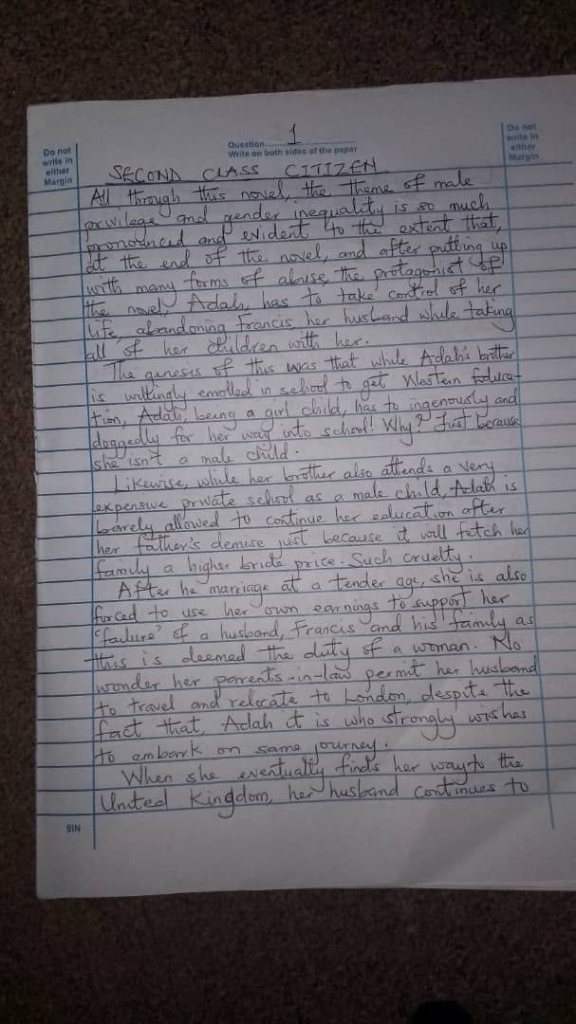 1
Question
Write on both sides of the paper
Do not
write in
either
Margin
Do not
write in
either
Margin
SECOND CLASS CITIZEN
All through this novel, the theme of male
privilege and gender inequality is so much
pronounced and evident to the extent that,
at the end of the novel, and after putting up
with many forms of abuse, the protagonist of
the novel, Adah, has to take control of her
life, abandoning Francis, her husband while taking
all of her children with her.
The genesis of this was that while Adah's brother
is willingly enrolled in school to get Western Educa-
tion, Adah, being a girl child, has to ingenously and
doggedly for her way into school! Why? Just because
she isn't a male child.
Likewise, while her brother also attends a very
expensive private school as a male child, Adah is
barely allowed to continue her education after
her father's demise just because it will fetch her
family a higher bride price. Such cruelty.
After he marriage at a tender age, she is also
forced to use her own earnings to support her
'failure' of a husband, Francis and his family as
this is deemed the duty of a woman. No
wonder her parents-in-law permit her husband
to travel and relocate to London, despite the
fact that, Adah it is who strongly wishes
to embark on same journey.
When she eventually finds her way to the
United Kingdom, her husband continues to
NI6